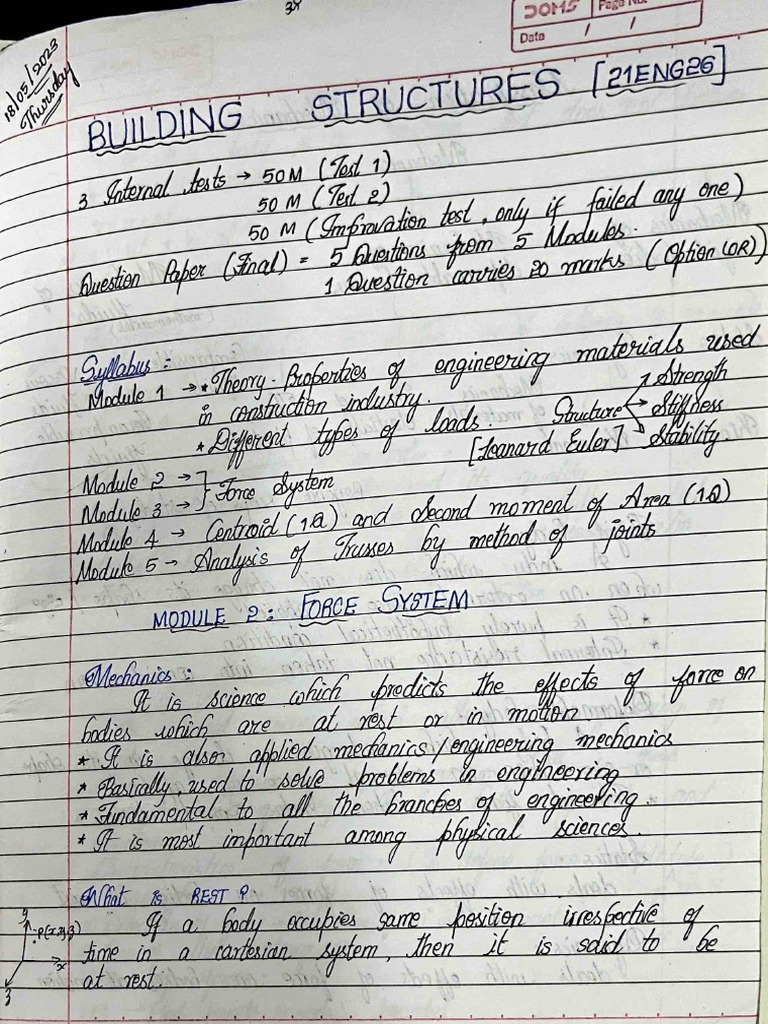 38
DOMS
Page No.
Date / /
18/05/2023
Thursday
BUILDING STRUCTURES [21ENG26]
3 Internal tests → 50 M (Test 1)
50 M (Test 2)
50 M (Improvation test, only if failed any one)
Question Paper (Final) = 5 Questions from 5 Modules.
1 Question carries 20 marks (Option (OR))
Syllabus:
Module 1 → * Theory - Properties of engineering materials used
in construction industry.
* Different types of loads.
Structure
Strength
Stiffness
Stability
[Leanard Euler]
Module 2 →
Module 3 →
} Force System
Module 4 → Centroid (1Q) and Second moment of Area (1Q)
Module 5 → Analysis of Trusses by method of joints
MODULE 2: FORCE SYSTEM
Mechanics:
It is science which predicts the effects of force on
bodies which are at rest or in motion
* It is also applied mechanics/engineering mechanics
* Basically, used to solve problems in engineering
* Fundamental to all the branches of engineering.
* It is most important among physical sciences.
What is REST?
If a body occupies same position irrespective of
time in a cartesian system, then it is said to be
at rest.
y
P(x,y,z)
x
z